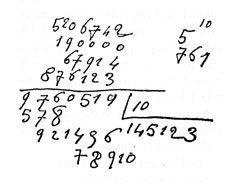 5206742
190000
67914
876123
9760519 | 10
578
921496 145123
78910
5 10
761